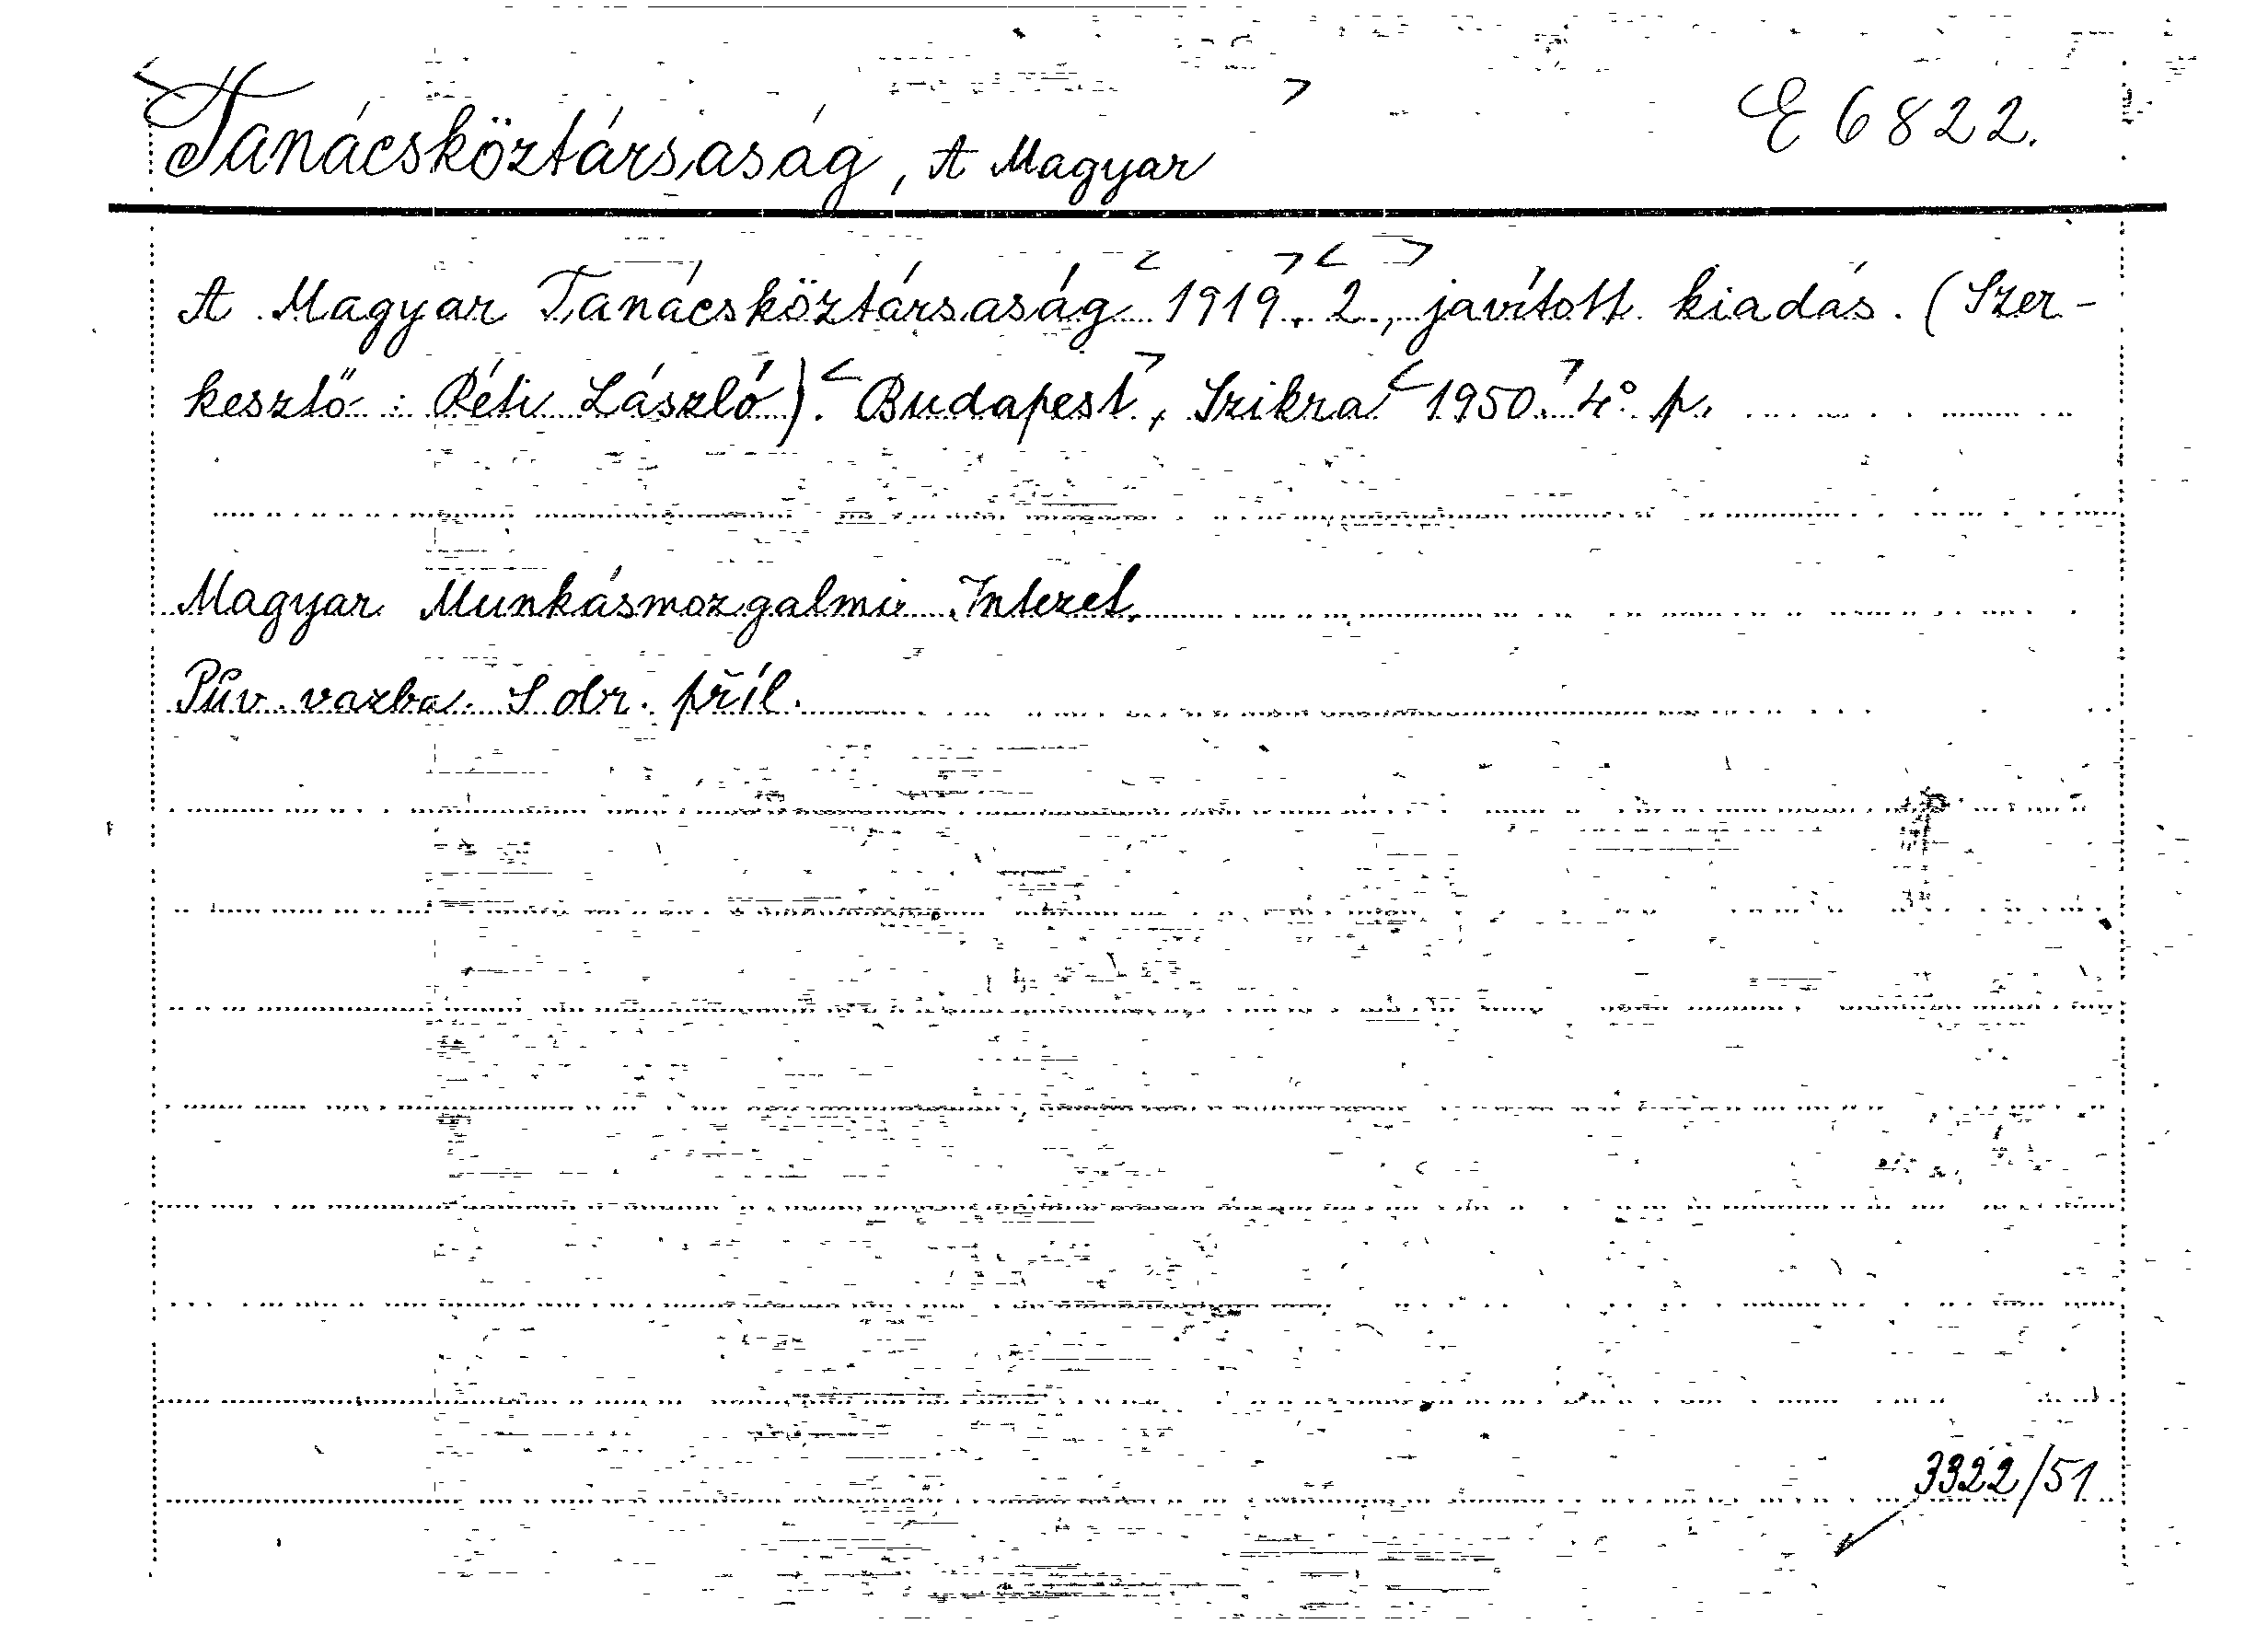 Tanácsköztársaság, A Magyar
E 6822.
A Magyar Tanácsköztársaság 1919. 2., javított kiadás. (Szer-
kesztő: Réti László). Budapest, Szikra 1950. 4° p.
Magyar Munkásmozgalmi Intezet.
Pův. vazba. S obr. příl.
3322/51